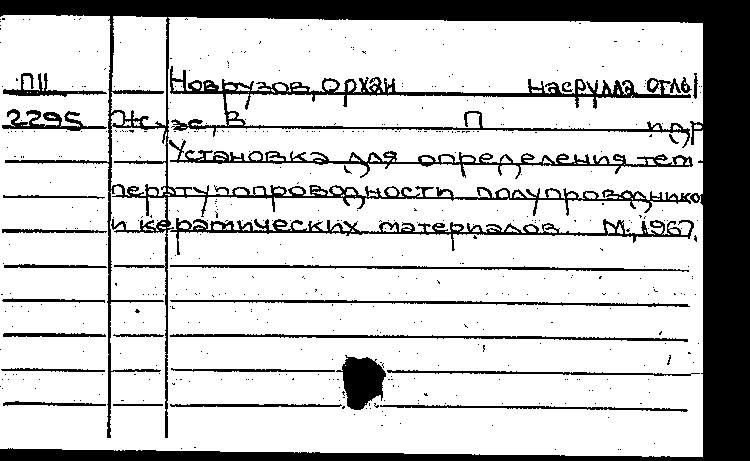 П11 Новрузов, Орхан Насрулла оглы
2295 Жузе, В П и др
Установка для определения тем-
пературопроводности полупроводников
и керамических материалов. М., 1967.